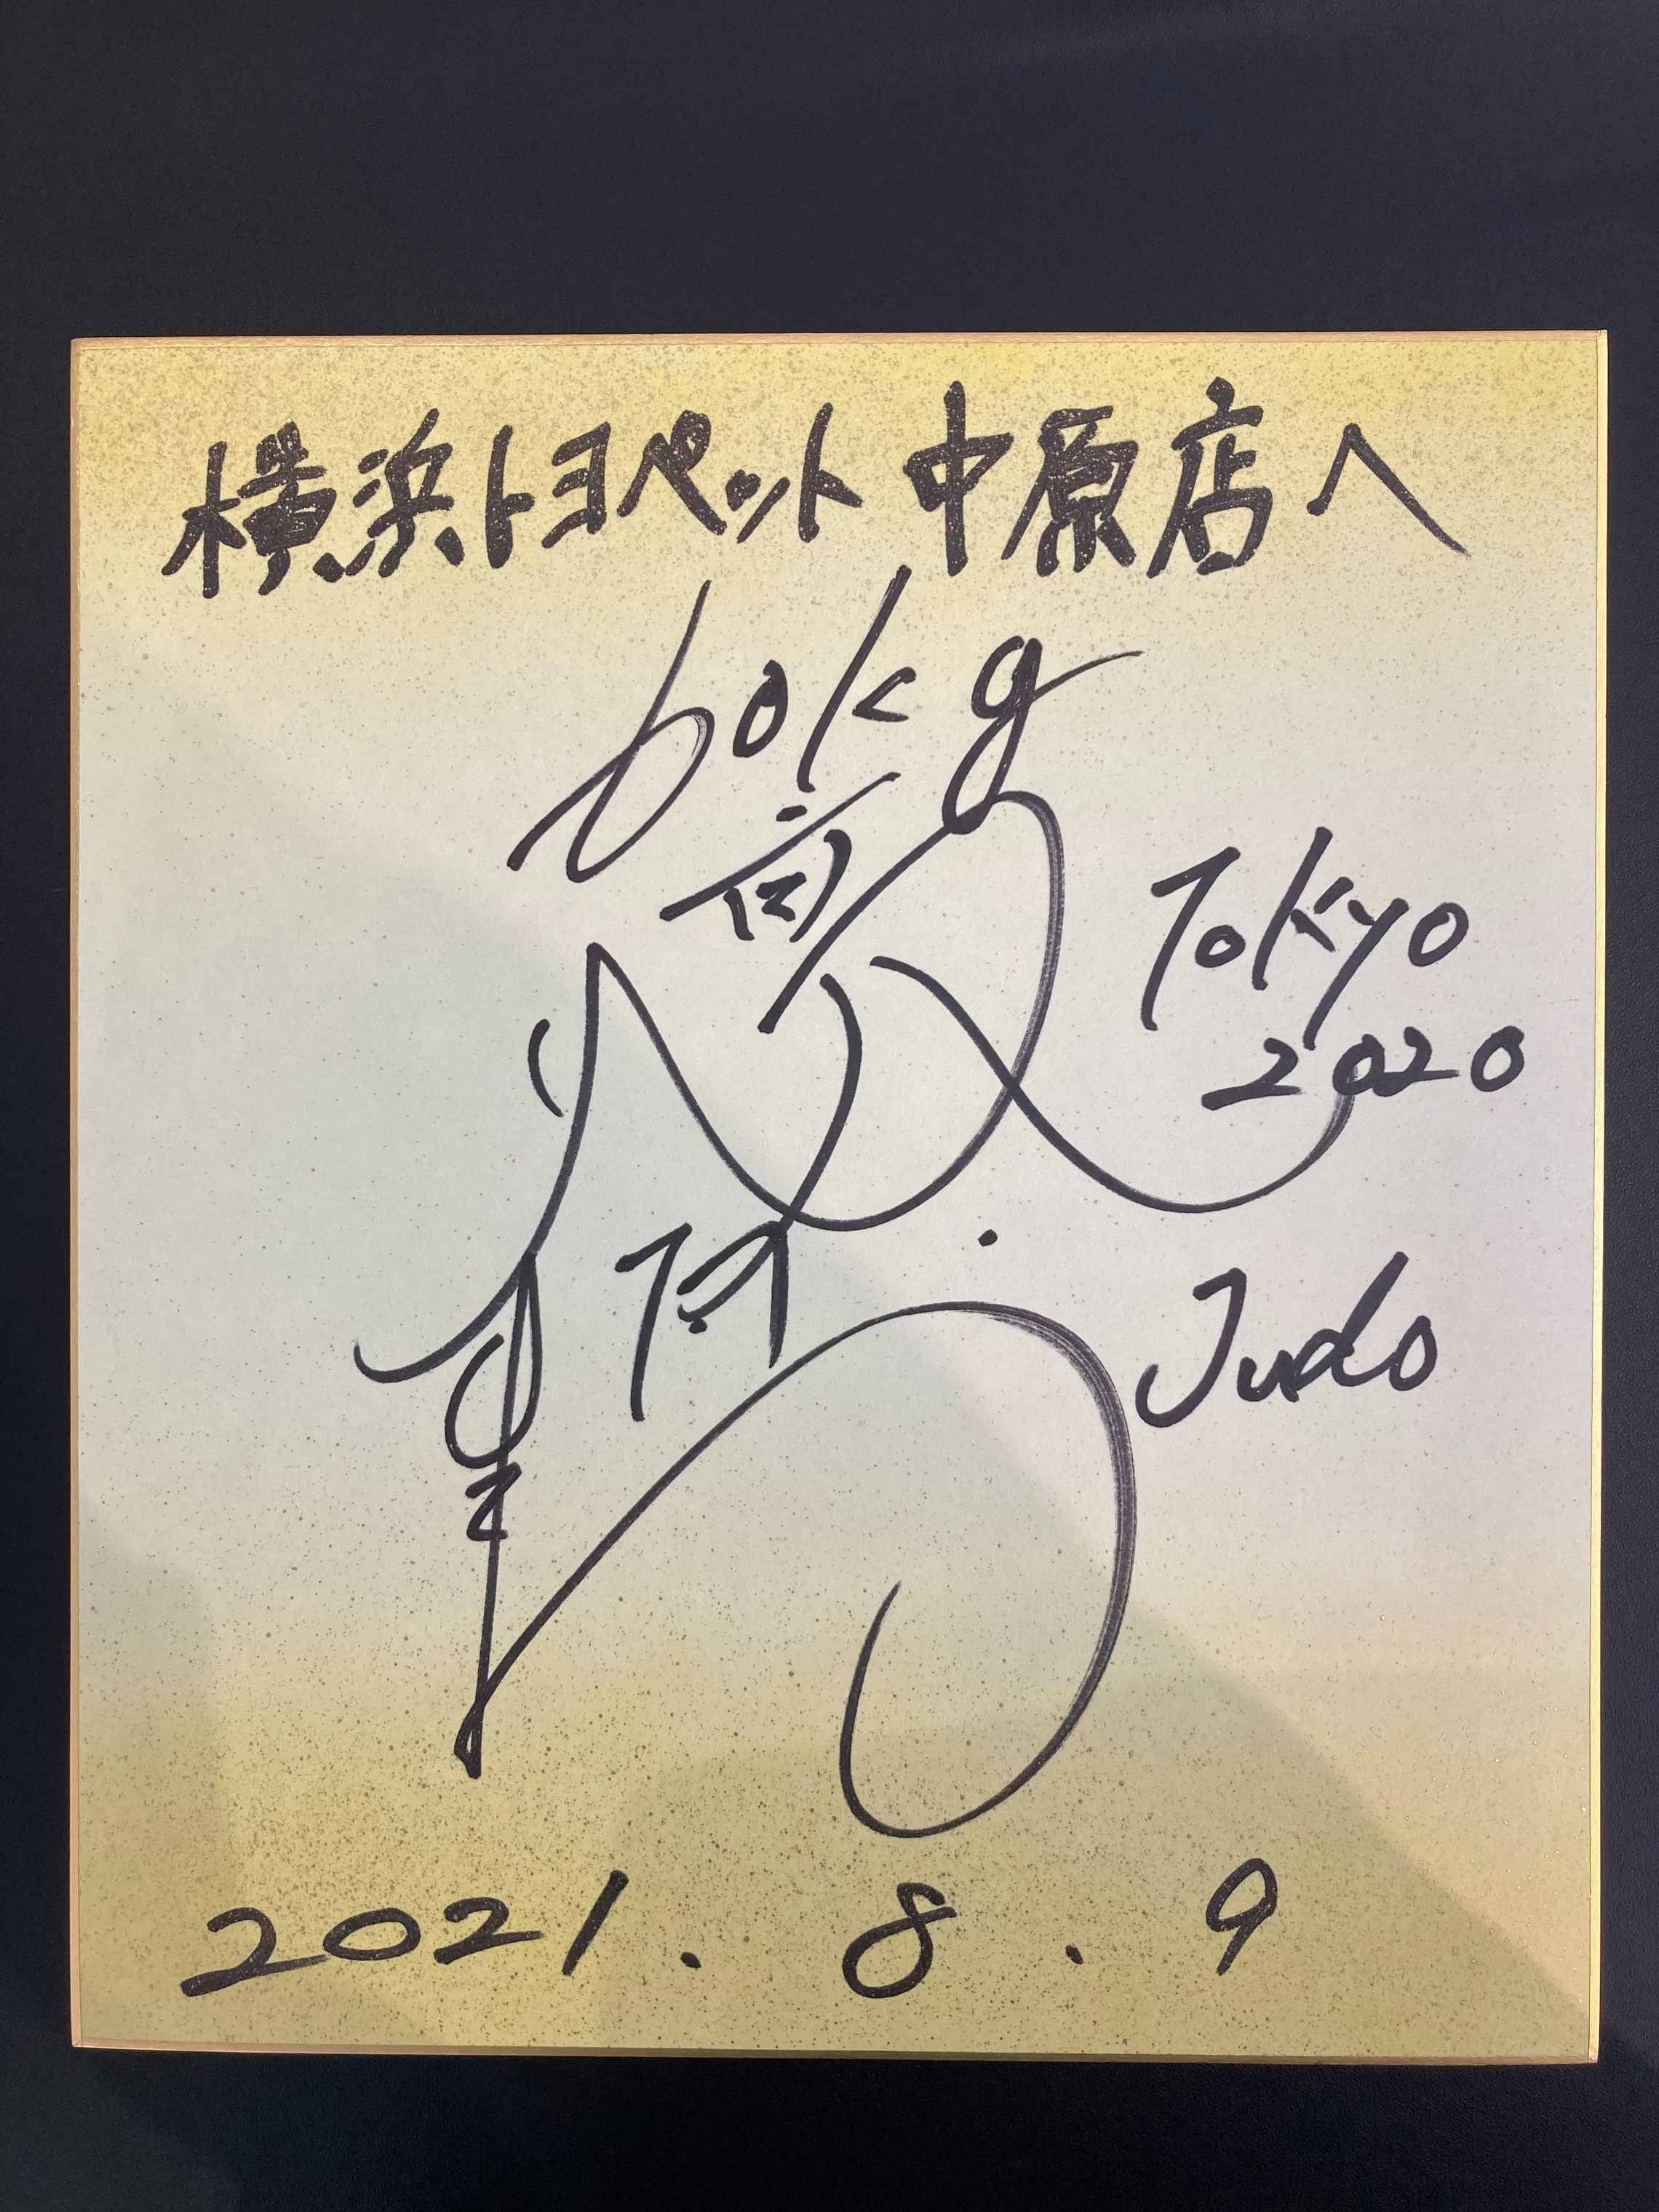 横浜トヨペット 中原店へ
60kg
Tokyo
2020
Judo
2021. 8. 9